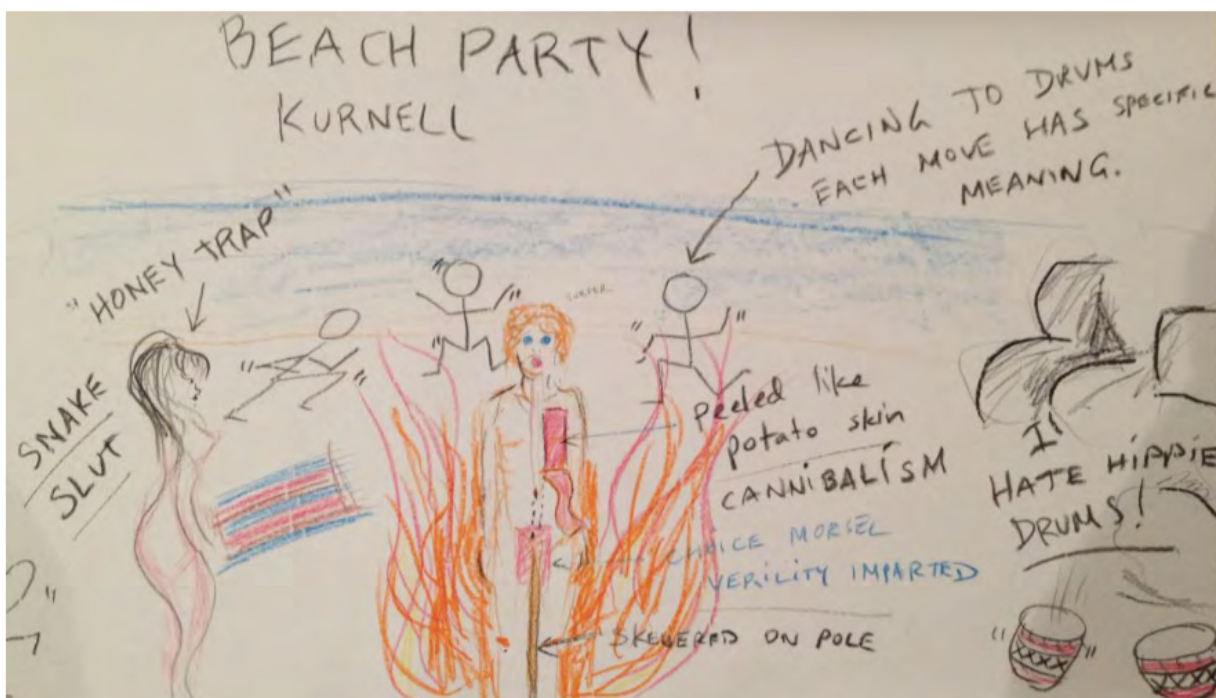 BEACH PARTY!
KURNELL
DANCING TO DRUMS
EACH MOVE HAS SPECIFIC
MEANING.
"HONEY TRAP"
SNAKE
SLUT
SURFER
peeled like
potato skin
CANNIBALISM
CHOICE MORSEL
VERILITY IMPARTED
SKEWERED ON POLE
I
HATE HIPPIE
DRUMS!